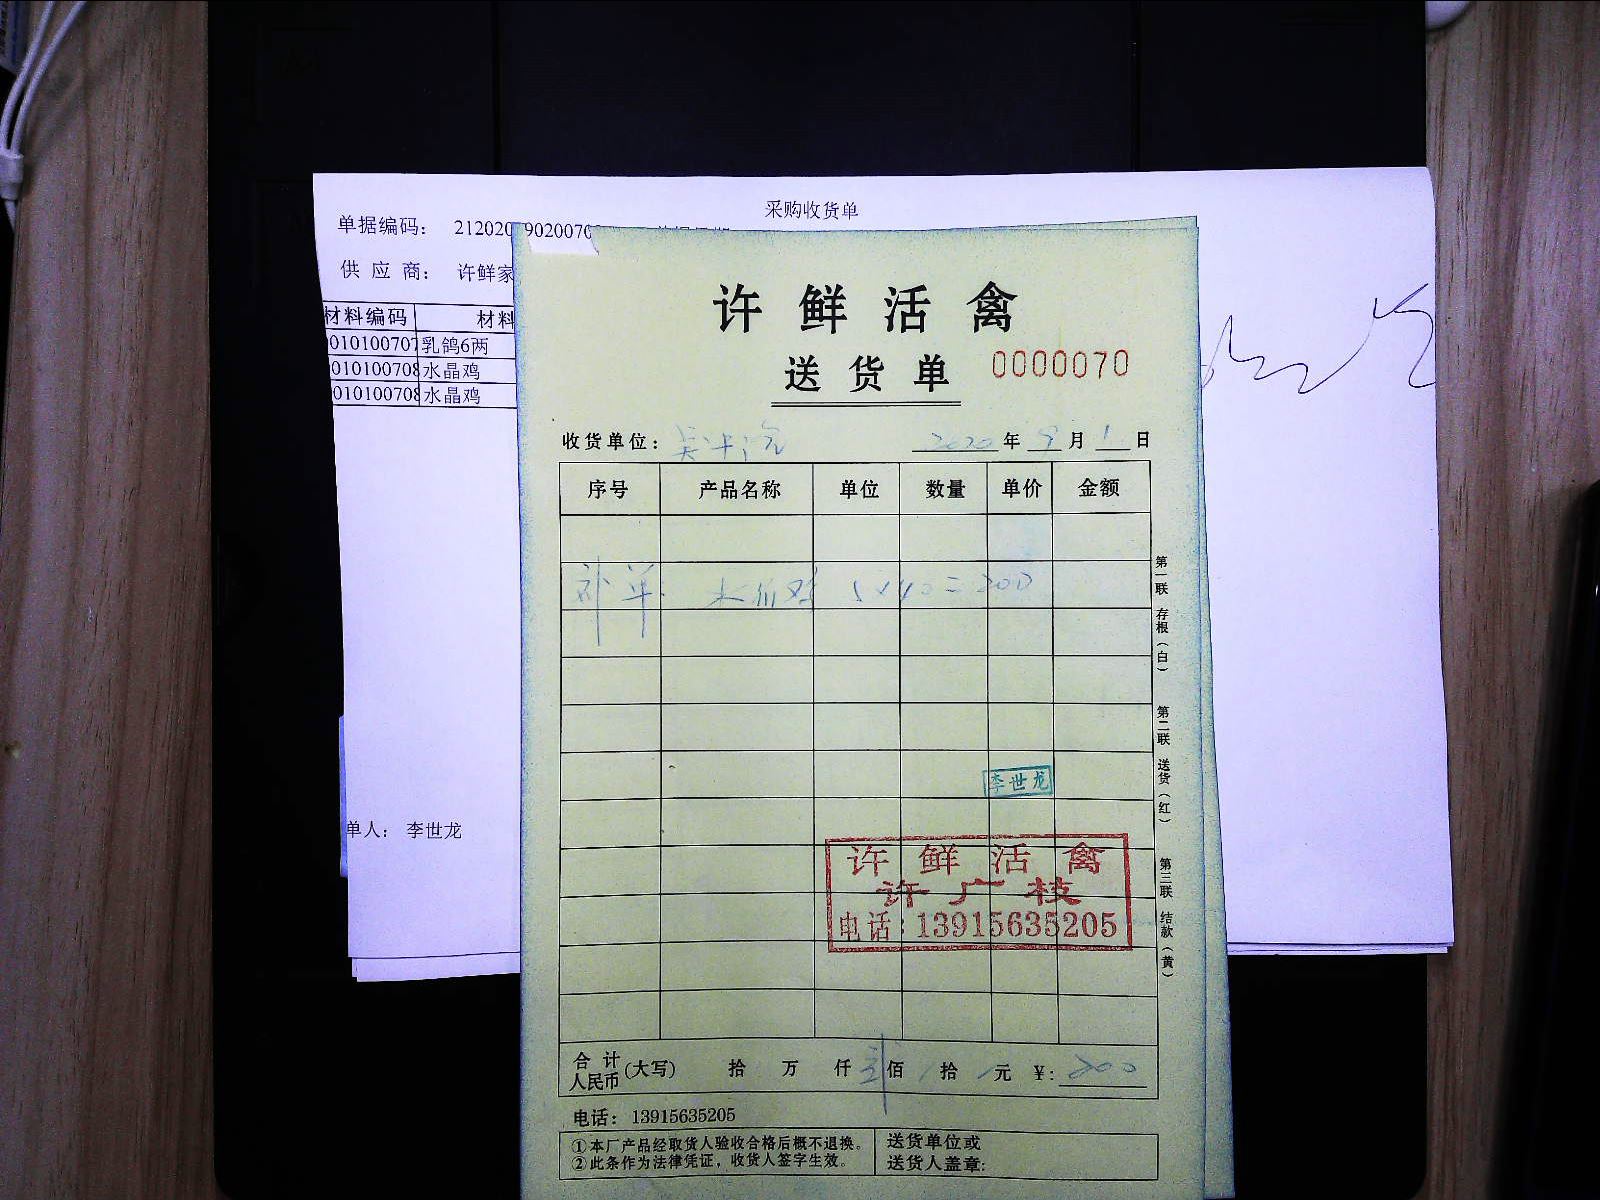 采购收货单
单据编码： 212020 9020070
供 应 商： 许鲜家
材料编码 材料
010100707 乳鸽6两
010100708 水晶鸡
010100708 水晶鸡
单人： 李世龙
许鲜活禽
送货单 0000070
收货单位： 2020 年 9 月 1 日
序号 产品名称 单位 数量 单价 金额
补单. 5×40=200
李世龙
许鲜活禽
许广枝
电话：13915635205
第一联 存根（白） 第二联 送货（红） 第三联 结款（黄）
合计人民币(大写) 拾 万 仟 佰 拾 元 ¥: 200
电话： 13915635205
①本厂产品经取货人验收合格后概不退换。
②此条作为法律凭证，收货人签字生效。
送货单位或
送货人盖章: